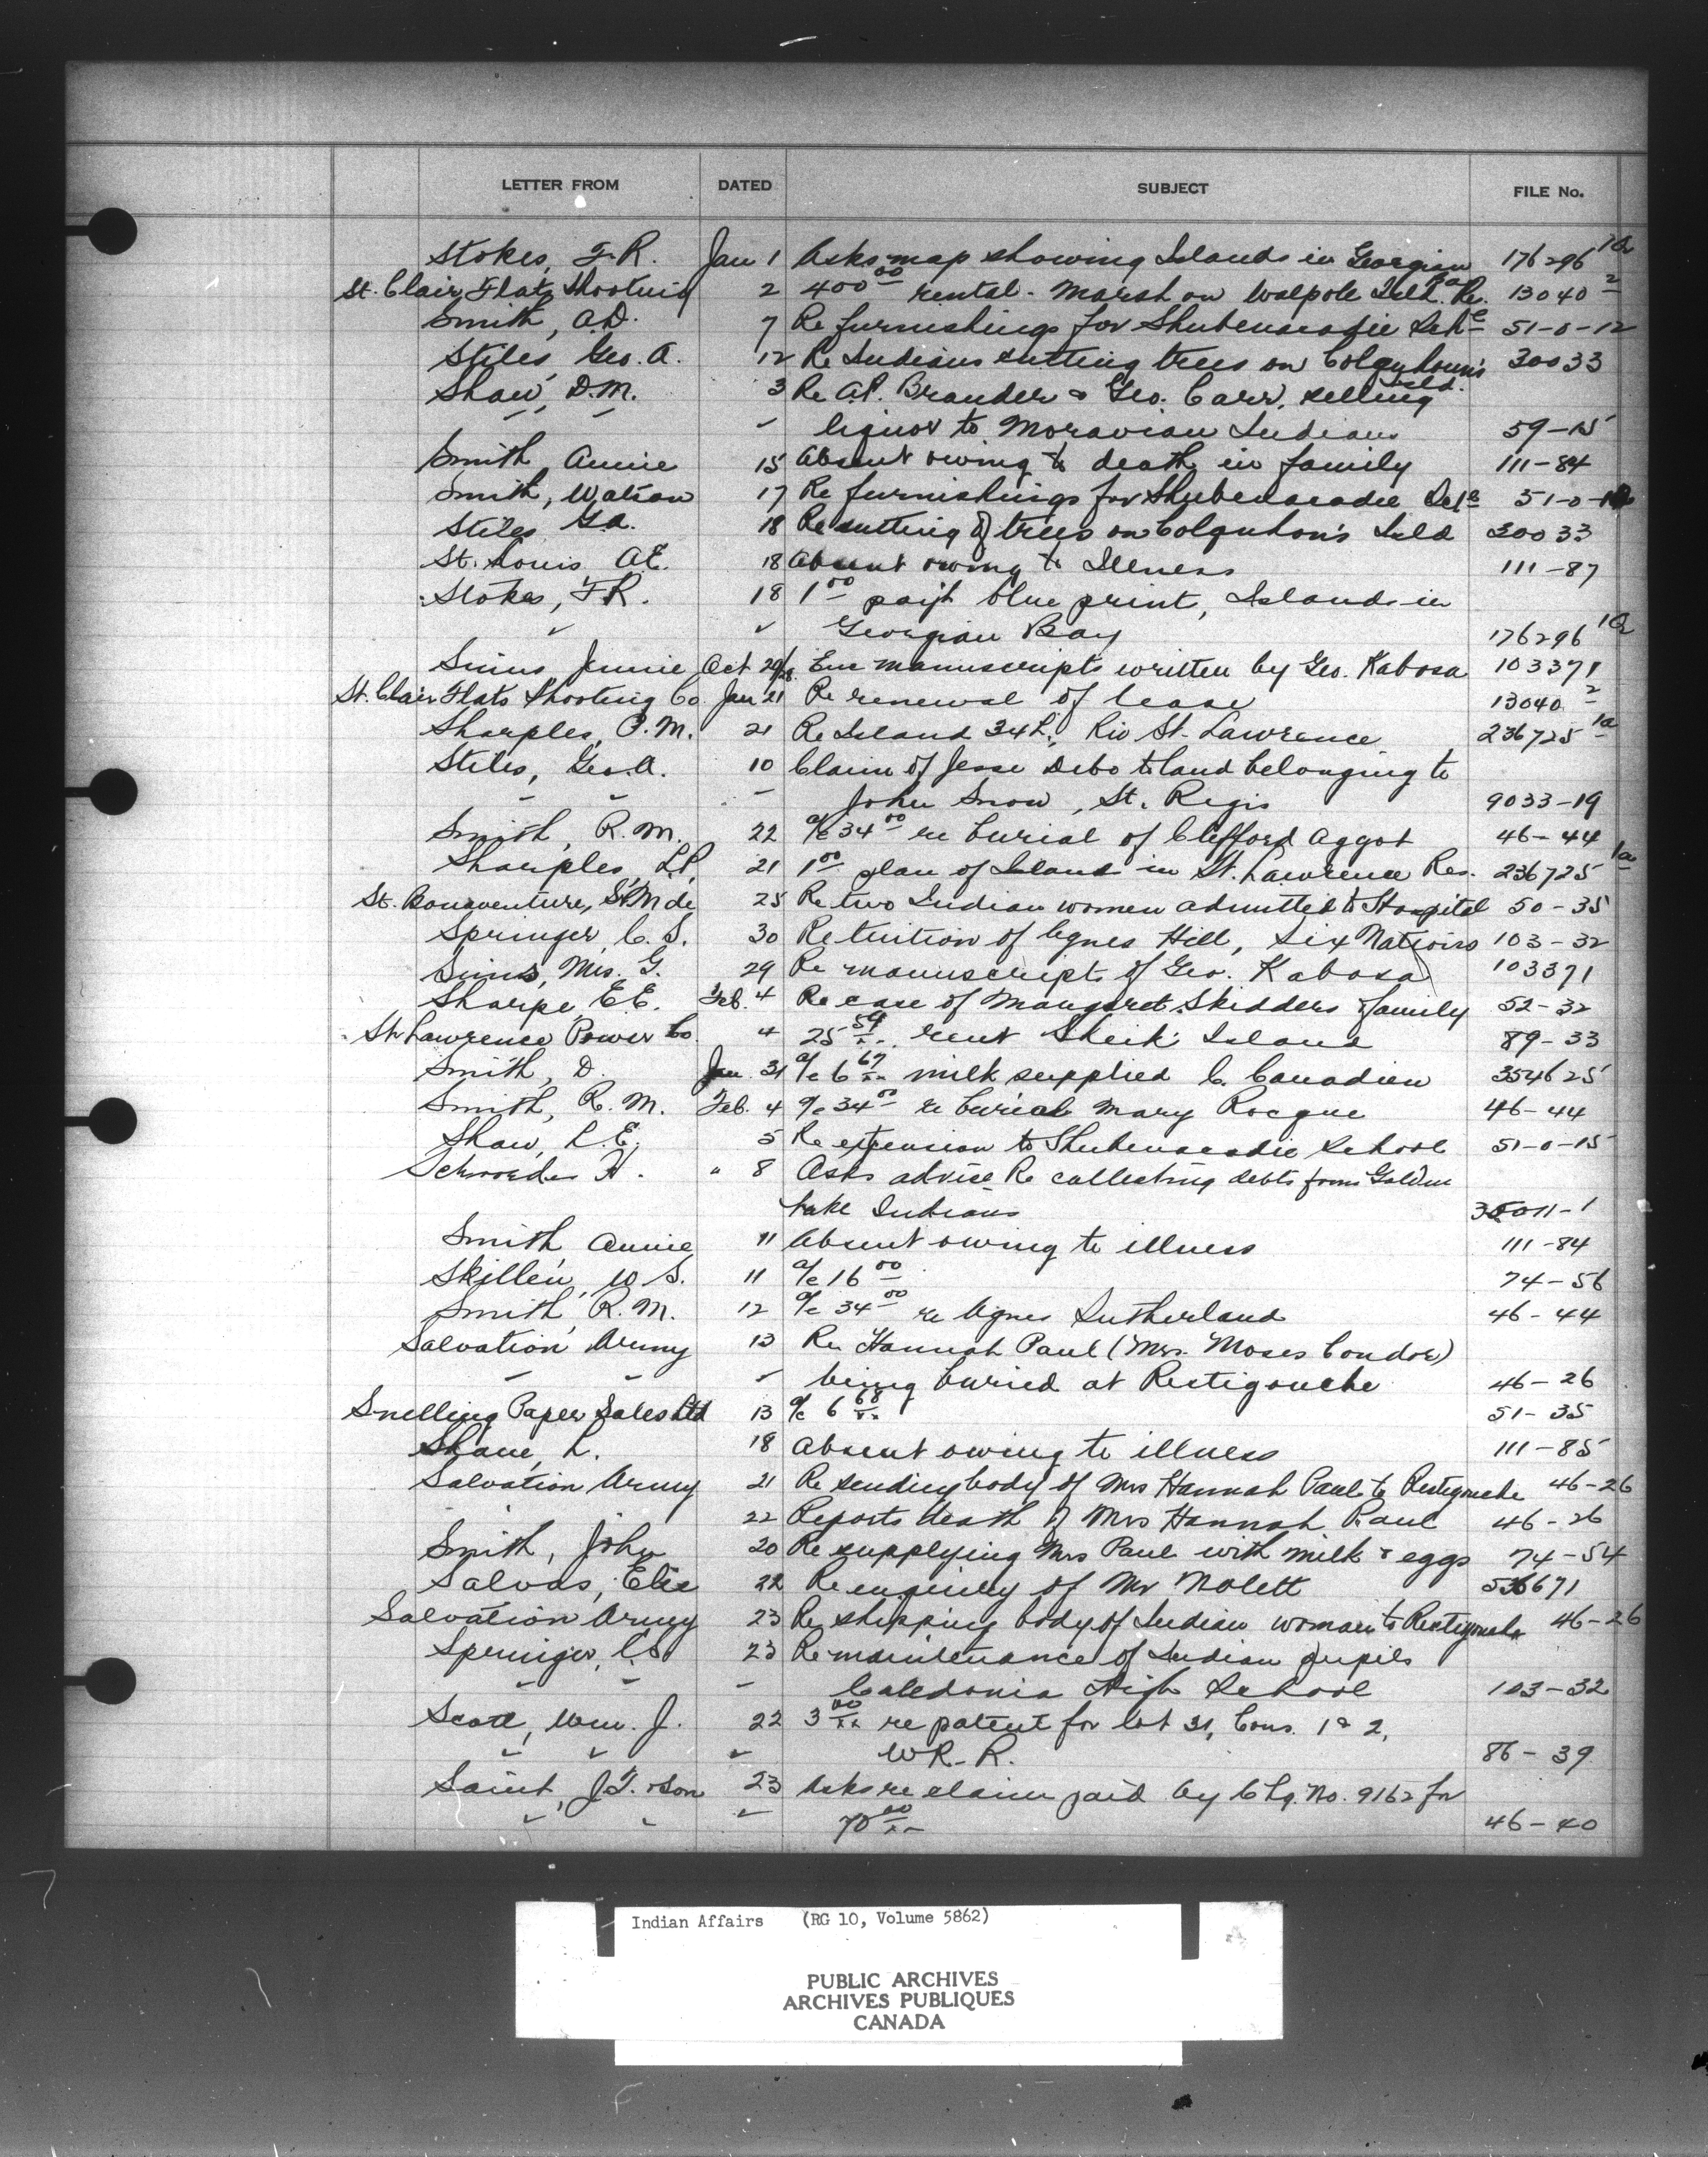 LETTER FROM DATED SUBJECT FILE No.
Stokes, F.R. Jan 1 Asks map showing Islands in Georgian Ba 176296 1a
St. Clair Flats Shooting 2 400.00 rental - Marsh on Walpole Isld. Re. 13040-2
Smith, A.D. 7 Re furnishings for Shubenacadie Sch 51-0-12
Stiles, Geo. A. 12 Re Indians cutting trees on Colquhoun's Isld. 30033
Shaw, D.M. 3 Re A.P. Brander & Geo. Carr, selling
" " " liquor to Moravian Indians 59-15
Smith, Annie 15 Absent owing to death in family 111-84
Smith, Watson 17 Re furnishings for Shubenacadie 51-0-
Stiles G.A. 18 Re cutting of trees on Colquhon's Isld 30033
St. Louis A.E. 18 Absent owing to Illness 111-87
Stokes, F.R. 18 1.00 paym't blue print, Islands in
" " Georgian Bay 176296 1a
Sims Jennie Oct 29/28 Enc manuscripts written by Geo. Kabosa 103371
St. Clair Flats Shooting Co. Jan 21 Re renewal of lease 13040-2
Sharples, P.M. 21 Re Island 34L, Riv St. Lawrence 236725-1a
Stiles, Geo. A. 10 Claim of Jesse Debo to land belonging to
" " " John Snow, St. Regis 9033-19
Smith, R.M. 22 a/c 34.00 re burial of Clifford Aggot 46-44
Sharples, L.P. 21 1.00 plan of Island in St. Lawrence Res. 236725 1a
St. Bonaventure, Sr M de 25 Re two Indian women admitted to Hospital 50-35
Springer, C.S. 30 Re tuition of Agnes Hill, Six Nations 103-32
Sims, Mrs. G. 29 Re manuscript of Geo. Kabosa 103371
Sharpe, E.E. Feb. 4 Re case of Mangaret Skidders family 52-32
St. Lawrence Power Co. 4 25.54 rent Sheik Island 89-33
Smith, D. Jan. 31 a/c 6.67 milk supplied C. Canadien 354625
Smith, R.M. Feb. 4 a/c 34.00 re burial Mary Rocque 46-44
Shaw, L.E. 5 Re extension to Shubenacadie School 51-0-15
Schroeder H. " 8 Asks advise Re collecting debts from Golden
Lake Indians 011-1
Smith, Annie 11 Absent owing to illness 111-84
Skillen, W.S. 11 a/c 16.00 74-56
Smith, R.M. 12 a/c 34.00 re Agnes Sutherland 46-44
Salvation Army 13 Re. Hannah Paul (Mrs. Moses Condo)
" " " being buried at Restigouche 46-26
Snelling Paper Sales Ltd 13 a/c 6.68 51-35
Shane, L. 18 Absent owing to illness 111-85
Salvation Army 21 Re sending body of Mrs Hannah Paul to Restigouche 46-26
22 Reports death of Mrs Hannah Paul 46-26
Smith, John 20 Re supplying Mrs Paul with milk & eggs 74-54
Salvas, Elie 22 Re enquiry of Mr Nolett 6671
Salvation Army 23 Re shipping body of Indian woman to Restigouche 46-26
Springer, C.S. 23 Re maintenance of Indian pupils
" " " Caledonia High School 103-32
Scott, Wm. J. 22 3.00 re patent for lot 31, Cons. 1 & 2,
" " " W.R.R. 86-39
Saint, J.T. & Son 23 Asks re claim paid by Chq. No. 9162 for
" " " 70.00 46-40
Indian Affairs (RG 10, Volume 5862)
PUBLIC ARCHIVES
ARCHIVES PUBLIQUES
CANADA